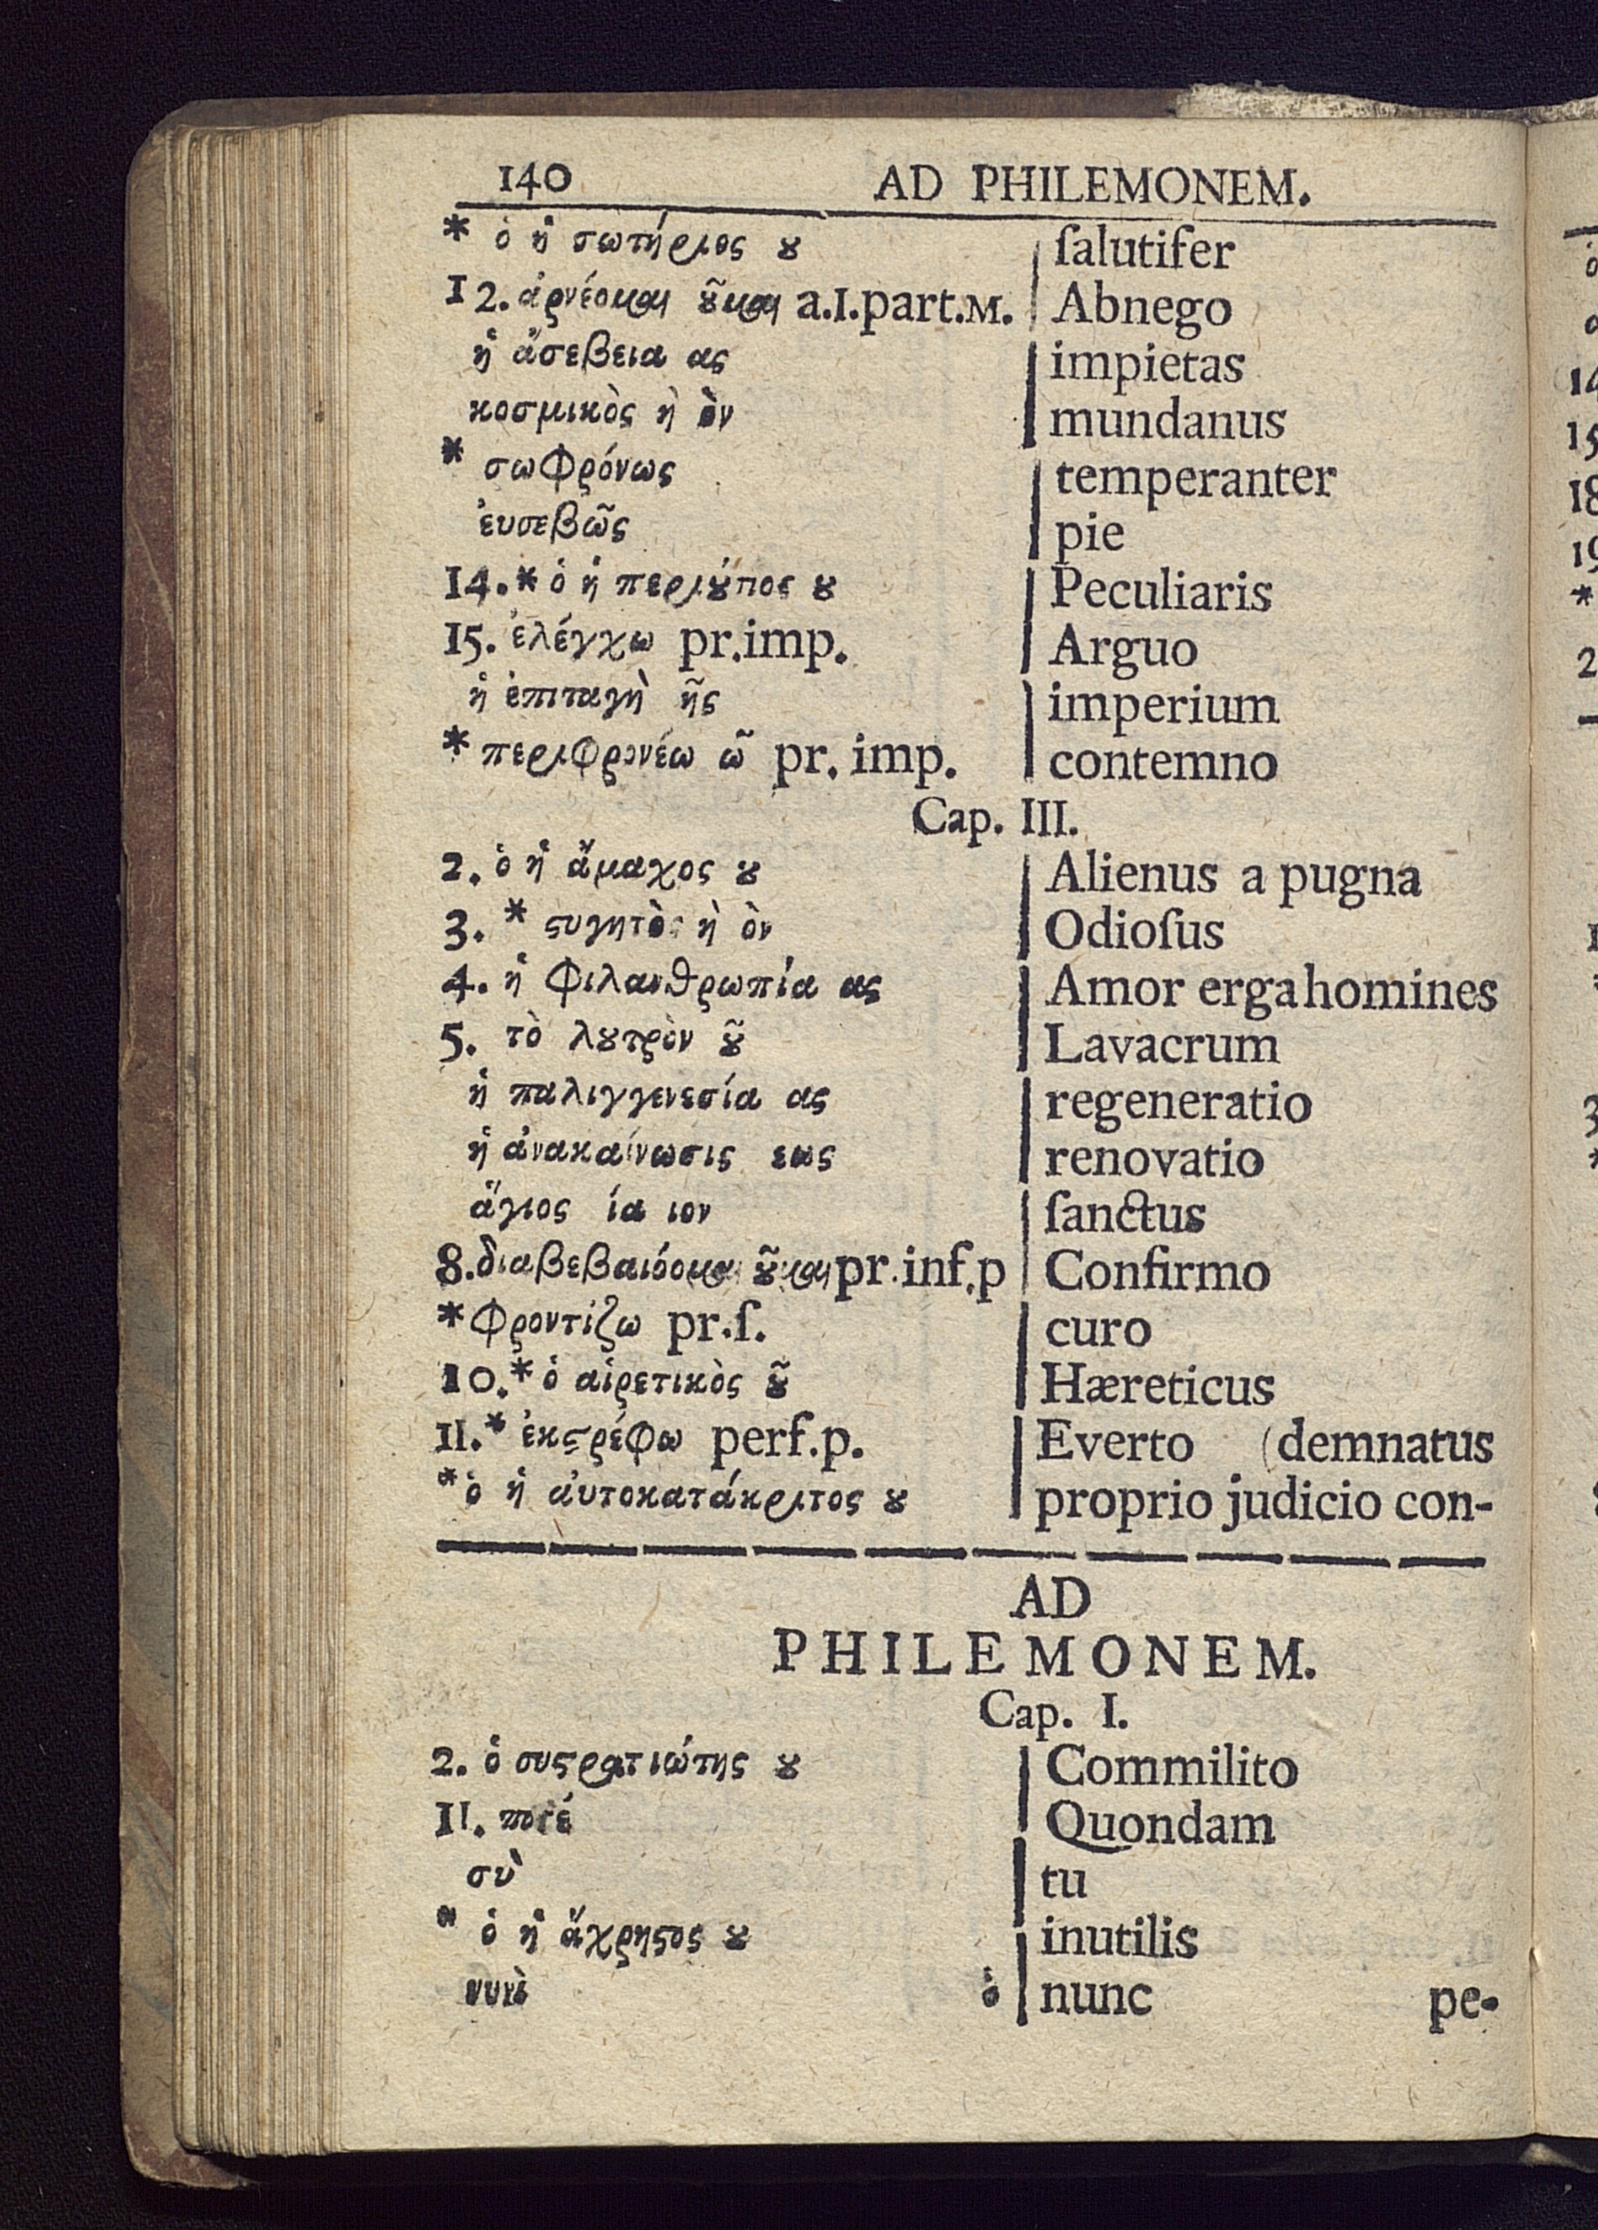 140 AD PHILEMONEM.
* ὁ ἡ σωτήριος ȣ | ſalutifer
12. ἀρνέομαι ȣ͂μαι a.1.part.M. | Abnego
ἡ ἀσεβεια ας | impietas
κοσμικὸς ἡ ὸν | mundanus
* σωφρόνως | temperanter
ἐυσεβῶς | pie
14. * ὁ ἡ περιȣ́πος ȣ | Peculiaris
15. ἐλέγχω pr.imp. | Arguo
ἡ ἐπιταγὴ ῆς | imperium
* περιφρονέω ῶ pr. imp. | contemno
Cap. III.
2. ὁ ἡ ἄμαχος ȣ | Alienus a pugna
3. * ςυγητὸς ὴ ὸν | Odioſus
4. ἡ φιλανθρωπία ας | Amor erga homines
5. τὸ λȣτρὸν ȣ͂ | Lavacrum
ἡ παλιγγενεσία ας | regeneratio
ἡ ἀνακαίνωσις εως | renovatio
ἅγιος ία ιον | ſanctus
8. διαβεβαιόομαι ȣ͂μαι pr.inf.p | Confirmo
* φροντίζω pr.ſ. | curo
10. * ὁ αἱρετικὸς ȣ͂ | Hæreticus
11. * ἐκςρέφω perf.p. | Everto (demnatus
* ὁ ἡ ἀυτοκατάκριτος ȣ | proprio judicio con-
AD
PHILEMONEM.
Cap. I.
2. ὁ συςρατιώτης ȣ | Commilito
11. ποτέ | Quondam
σὺ | tu
* ὁ ἡ ἄχρηςος ȣ | inutilis
νυνὶ ὁ | nunc pe-